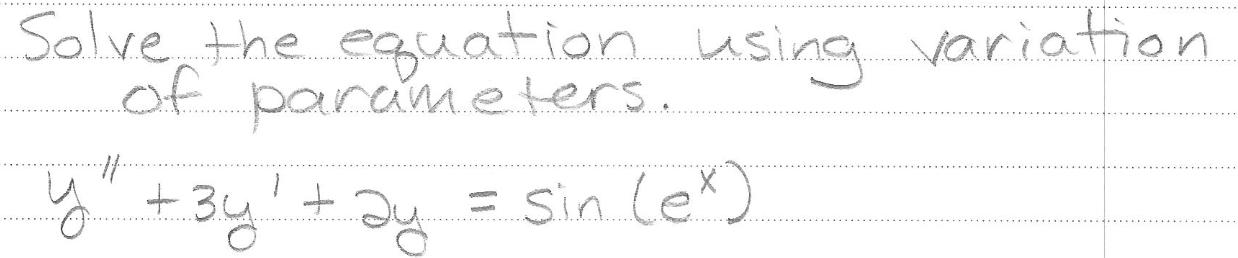 Solve the equation using variation
of parameters.
y'' + 3y' + 2y = sin(e^x)